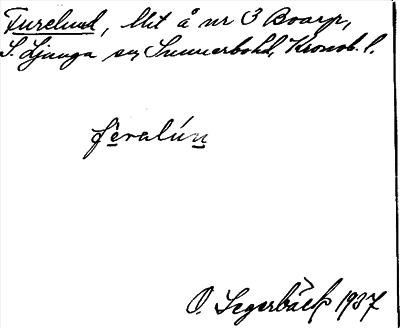 Furelund, lht å nr 3 Boarp,
S. Ljunga sn, Sunnerbohd, Kronob. l.
fèralún
O. Segerbäck 1937